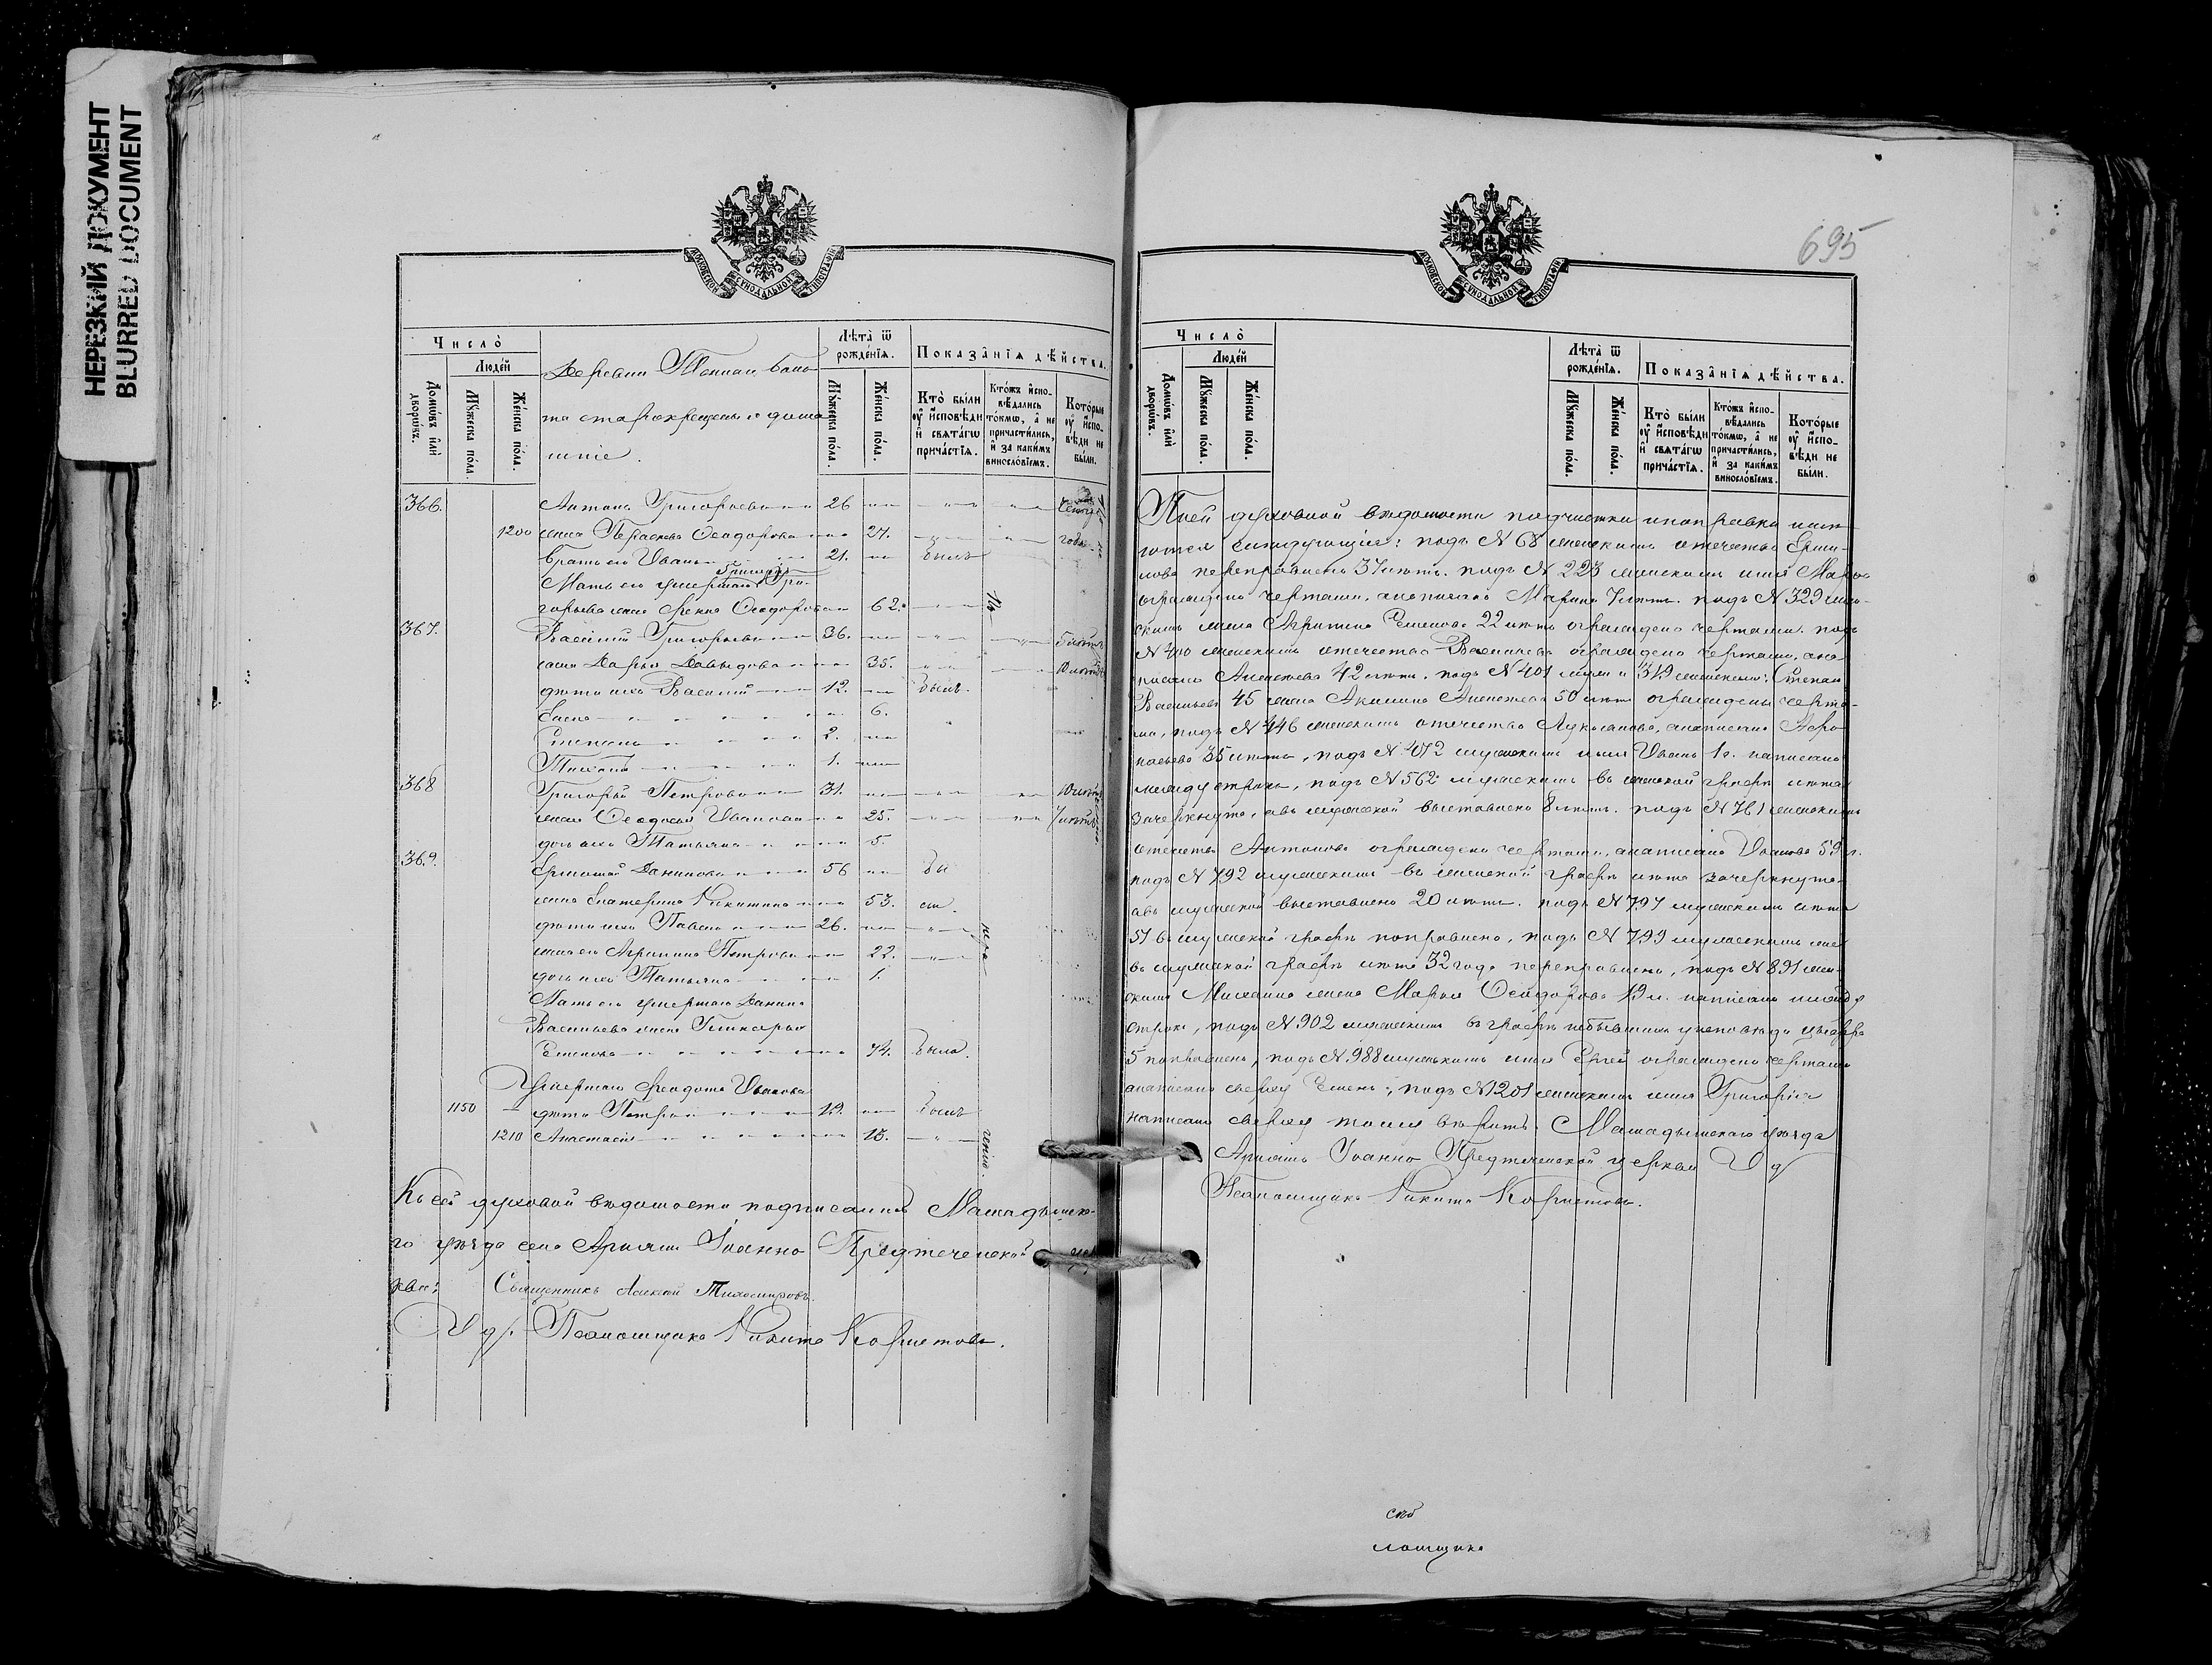 НЕРЕЗКИЙ ДОКУМЕНТ
BLURRED DOCUMENT
МОСКОВСКОЙ СѴНОДАЛЬНОЙ ТИПОГРАФІИ
Число̀
Люде́й
Домѡ́въ и҆лѝ дворѡ́въ.
Мꙋ́жеска по́ла.
Же́нска по́ла.
Деревни
та старокрещены и дома
шніе.
Лѣта̀ ѿ рожде́нїѧ.
Мꙋ́жеска по́ла.
Же́нска по́ла.
Показа̑нїѧ дѣ́йства.
Кто̀ бы́ли ᲂу҆ и҆сповѣди и҆ свѧта́гѡ прича́стїѧ.
Кто́жъ и҆спо-вѣдались то́кмѡ, а҆ не причасти́лись, и҆ за каки́мъ винносло́вїемъ.
Кото́рые ᲂу҆ и҆спо-вѣди не бы́ли.
366. Антонъ Григорьевъ 26
1200 жена Парасковья Феодорова 27. года
братъ его Иванъ 21. былъ
Мать его умершаго Гри-
горьева жена Феодорова 62.
367. Василій Григорьевъ 36. 5 лѣтъ
жена Дарья Давыдова 35. 10 лѣтъ
дѣти ихъ Василій 12. былъ.
Елена 6.
Степанъ 2.
1.
368 Григорій Петровъ 31. 10 лѣтъ
жена Феодосья Иванова 25. 7 лѣтъ
дочь ихъ Татьяна 5.
369. Ермолай Даниловъ 56 бы
жена Екатерина Никитина 53. ли.
дѣти ихъ Павелъ 26.
жена его Агрипина Петрова 22.
дочь ихъ Татьяна 1.
Мать его умершаго Данила
Васильева жена Гликерья
Семенова 74. была.
Умершаго Феодота Иванова
1150 дѣти Петръ 19. былъ
1210 Анастасія 18.
Къ сей духовной вѣдомости подписались Мамадышска-
го уѣзда села Арняшъ Іоанно Предтеченской цер
кви:
Священникъ Алексій Тихомировъ.
И д. Псаломщика Никита
695
Число̀
Люде́й
Домѡ́въ и҆лѝ дворѡ́въ.
Мꙋ́жеска по́ла.
Же́нска по́ла.
Лѣта̀ ѿ рожде́нїѧ.
Мꙋ́жеска по́ла.
Же́нска по́ла.
Показа̑нїѧ дѣ́йства.
Кто̀ бы́ли ᲂу҆ и҆сповѣди и҆ свѧта́гѡ прича́стїѧ.
Кто́жъ и҆спо-вѣдались то́кмѡ, а҆ не причасти́лись, и҆ за каки́мъ винносло́вїемъ.
Кото́рые ᲂу҆ и҆спо-вѣди не бы́ли.
По сей духовной вѣдомости подчистки и поправки имѣ-
ются слѣдующія: подъ № 68 женскимъ отечество Ерми-
лова переправлено 37 лѣтъ. подъ № 223 женскимъ имя Марья
ограждено чертами, а написано Марина 7 лѣтъ. подъ № 329 жен-
скимъ жена Агрипина Семенова 22 лѣтъ ограждено чертами. подъ
№ 400 женскимъ отечество Васильева ограждено чертами, а на-
писано Алексѣева 42 лѣтъ. подъ № 401 муж и 319 женскимъ: Степанъ
Васильевъ 45 жена Акилина Алексѣева 50 лѣтъ ограждены черта-
ми, подъ № 446 женскимъ отечество Лукьянова, а написано
35 лѣтъ, подъ № 472 мужскимъ имя Иванъ 1 г. написано
между строкъ, подъ № 562 мужскимъ въ женской графѣ лѣта
зачеркнуто, а въ мужской выставлено 8 лѣтъ. подъ № 761 женскимъ
отечество Антонова ограждено чертами, а написано Иванова 59 л.
подъ № 792 мужскимъ въ женской графѣ лѣта зачеркнуто
а въ мужской выставлено 20 лѣтъ. подъ № 797 мужскимъ лѣта
51 въ мужской графѣ поправлено, подъ № 799 мужскимъ
въ мужской графѣ лѣта 32 года переправлено, подъ № 891 жен-
скимъ Михаила жена Марья Феодорова 19 л. написано между
строкъ, подъ № 902 въ графѣ небывшихъ у исповѣди цифра
5 поправлена, подъ № 988 мужскимъ имя Сергей ограждено чертами
а написано сверху Семенъ; подъ № 1201 женскимъ имя Григорія
написано сверху тому вѣрить. Мамадышскаго уѣзда
Арняшъ Іоанно Предтеченской церкви И д
Псаломщика Никита
ломщика